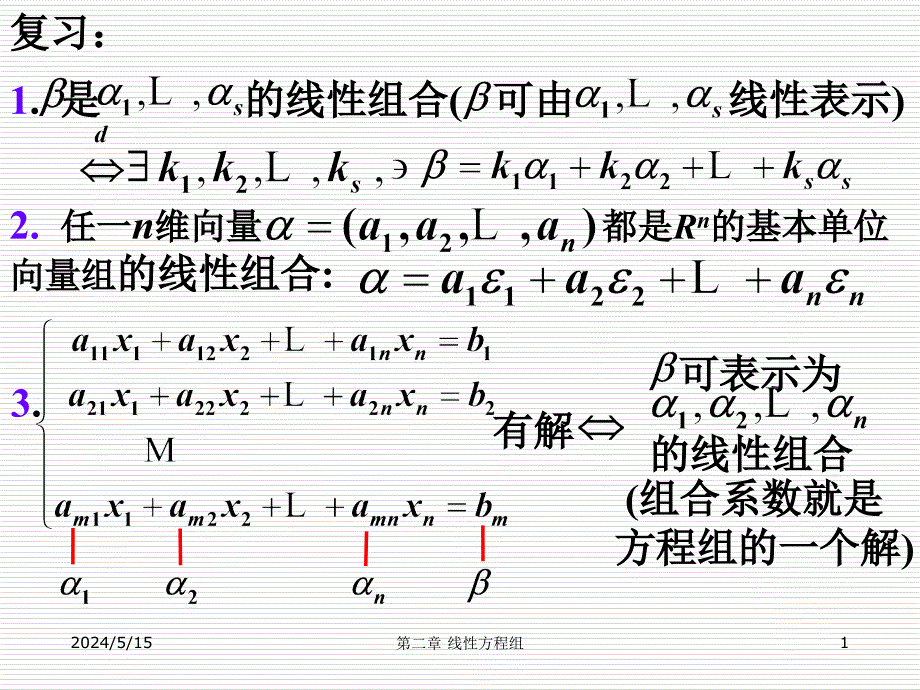 复习：
1. β是α₁,L ,αₛ的线性组合(β可由α₁,L ,αₛ线性表示)
d
⇔∃ k₁,k₂,L ,kₛ,∍ β=k₁α₁+k₂α₂+L +kₛαₛ
2. 任一n维向量α=(a₁,a₂,L ,aₙ)都是Rⁿ的基本单位
向量组的线性组合: α=a₁ε₁+a₂ε₂+L +aₙεₙ
3.
a₁₁x₁+a₁₂x₂+L +a₁ₙxₙ=b₁
a₂₁x₁+a₂₂x₂+L +a₂ₙxₙ=b₂
M
aₘ₁x₁+aₘ₂x₂+L +aₘₙxₙ=bₘ
α₁ α₂ αₙ β
有解⇔
β可表示为
α₁,α₂,L ,αₙ
的线性组合
(组合系数就是
方程组的一个解)
2024/5/15 第二章 线性方程组 1